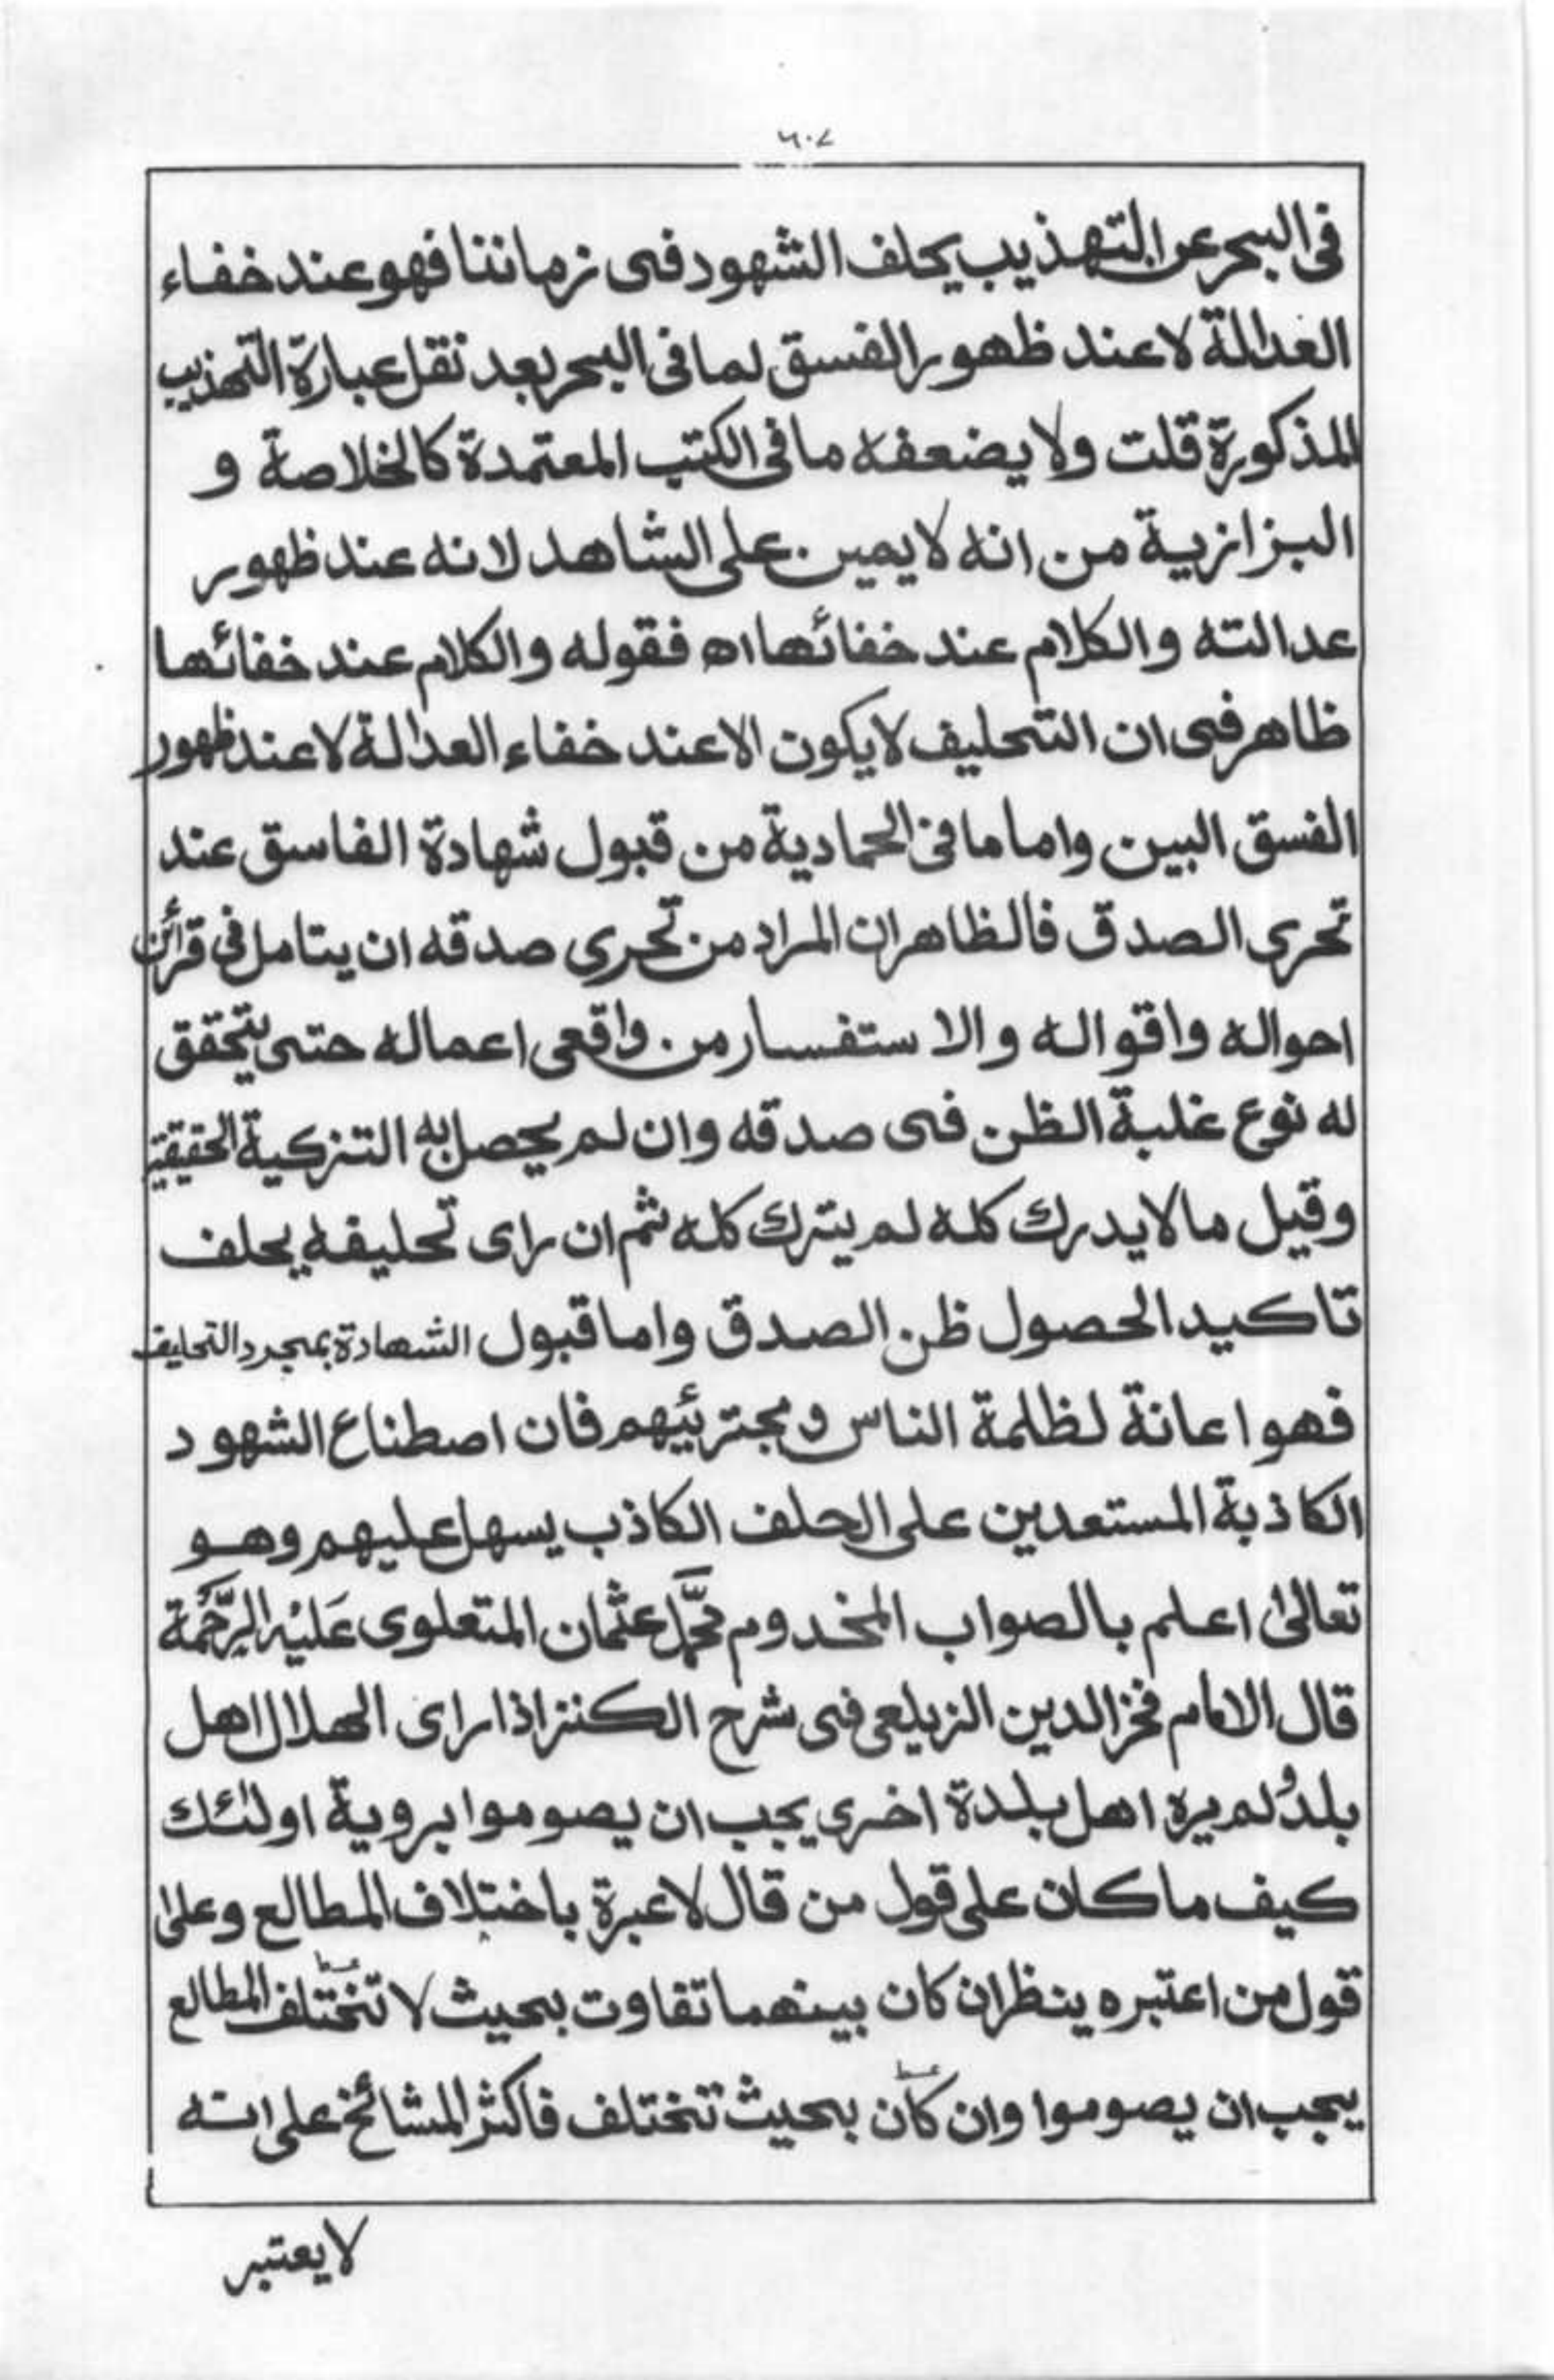 ٦٠٧
فی البحر عن التهذیب یحلف الشهود فی زماننا فهو عند خفاء
العدالة لا عند ظهور الفسق لما فی البحر بعد نقل عبارة التهذیب
المذکورة قلت ولا یضعفه ما فی الکتب المعتمدة کالخلاصة و
البزازیة من انه لا یمین علی الشاهد لانه عند ظهور
عدالته والکلام عند خفائها اه فقوله والکلام عند خفائها
ظاهر فی ان التحلیف لا یکون الا عند خفاء العدالة لا عند ظهور
الفسق البین واما ما فی الحمادیة من قبول شهادة الفاسق عند
تحری الصدق فالظاهر ان المراد من تحری صدقه ان یتامل فی قرائن
احواله واقواله والاستفسار من واقعی اعماله حتی یتحقق
له نوع غلبة الظن فی صدقه وان لم یحصل به التزکیة الحقیقیة
وقیل ما لا یدرك کله لم یترك کله ثم ان رای تحلیفه یحلف
تاکیدا لحصول ظن الصدق واما قبول الشهادة بمجرد التحلیف
فهو اعانة لظلمة الناس و مجترئیهم فان اصطناع الشهود
الکاذبة المستعدین علی الحلف الکاذب یسهل علیهم وهو
تعالیٰ اعلم بالصواب المخدوم محمّد عثمان المتعلوی عَلیْه الرّحْمَة
قال الامام فخر الدین الزیلعی فی شرح الکنز اذا رای الهلال اهل
بلد ولم یره اهل بلدة اخری یجب ان یصوموا برویة اولٰئك
کیف ما کان علی قول من قال لا عبرة باختلاف المطالع وعلیٰ
قول من اعتبره ینظر ان کان بینهما تفاوت بحیث لا تختلف المطالع
یجب ان یصوموا وان کان بحیث تختلف فاکثر المشائخ علی انه
لا یعتبر